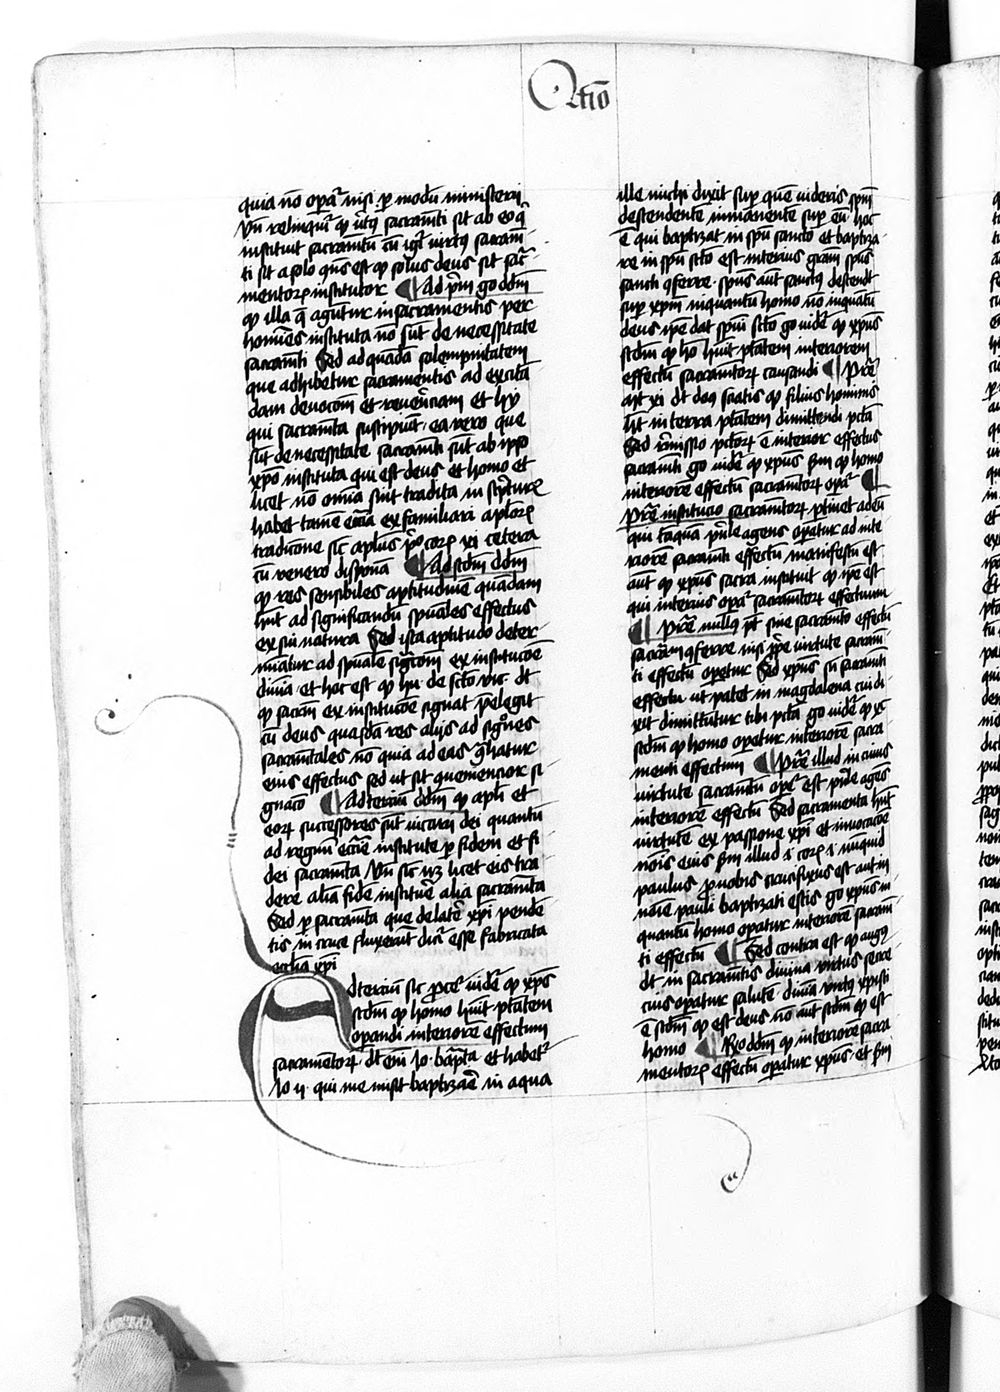 Qtiō
quia nō opat᷑ nisi ꝑ modū ministerij
Vn̄ relinquit᷑ ꝙ v̾tꝰ sacramēti sit ab eo q̇
instituit sacramentū cū igit᷑ virtus sacramē
ti sit a solo
mentoꝝ institutor ¶ Ad p̄m go dōm
ꝙ illa q̄ agūtur in sacramentis per
homīes instituta nō sūt de necessitate
sacramēti Sed ad quādā solempnitatem
que adhibetur sacramentis ad excitā
dam deuocōem et reuerēciam et hijs
qui sacramēta suscipiūt · ea vero que
sūt de necessitate sacramēti sūt ab ipso
xp̄o instituta qui est deus et homo et
licet nō omīa sint tradita in scpturꝭ
habet tamē eccīa ex familiari apl̄oꝝ
tradicione sic̄ aplus coꝝ xi cetera
cū venero disponā ¶ Ad scdm dōm
ꝙ res sensibiles aptitudinē quādam
hn̄t ad significandū spūales effectus
ex sui natura Sed ista aptitudo deter
minatur ad spūalē sigcōem ex institucōe
diuīa · et hoc est ꝙ hu de scto vic dt
ꝙ sacrm̄ ex institucōe signat p̄elegit
cū deus quasdā res alijs ad sigcōes
sacramētales nō quia ad eas
eius effectus sed ut sit quemencior si
gnacō ¶ Ad terciū dōm ꝙ apl̄i et
eoꝝ successores sūt vicarij dei quantū
ad regimē eccīe institute ꝑ fidem et fi
dei sacramēta Vn̄ sic̄ licet eis tra
dere aliā fidē instituē alia sacramēta
Sed ꝑ sacramēta que de latē xp̄i pendē
tis in cruce fluxerūt dicit᷑ esse fabricata
ecclia xp̄i
Ad terciū sic ꝓcedit᷑ videt᷑ ꝙ xp̄us
scdm ꝙ homo huit ptātem
opandi interiorē effectum
sacramentoꝝ · dt eni Io · bapta et habet᷑
Io ij · qui me misit baptizāe in aqua
ille michi dixit sup quē videris spm̄
descendentē manentē sup eū hoc
ē qui baptizat in spū sancto et baptiza
re in spū scto est interius grām spūs
sancti ꝯferre · spūs aūt sanctus descendt
sup xpm inquantū homo nō inquātū
deus ipe dat spūm sctō go videt᷑ ꝙ xp̄us
scdm ꝙ hō huit ptātem interiorem
effectū sacramētoꝝ causandi ¶ Pret᷑
mt xi dt dns sciatis ꝙ filius hominis
ht in terra ptātem dimittendi pctā
Sed remissio pctōꝝ ē interior effectus
sacramēti go videt᷑ ꝙ xp̄us scdm ꝙ homo
interiorē effectū sacramētoꝝ opat᷑ ¶
Pret᷑ institucio sacramētoꝝ ptinet ad eū
qui tāquā pn̄cipale agens opetur ad inte
riorē sacramēti effectū manifestū est
aut ꝙ xp̄us sacra instituit ꝙ ipe est
qui interius opat᷑ sacramētoꝝ effectum
¶ Pret᷑ nullus pt sine sacramēto effectū
sacramēti ꝯferre nisi ppē virtute sacramē
ti effectū opetur Sed xp̄us sn̄ sacramēti
effectū ut patet in magdalena cui di
xit dimittūtur tibi pctā go videt᷑ ꝙ xp̄s
scdm ꝙ homo opetur interiorē sacra
menti effectum ¶ Pret᷑ illud in cuius
virtute sacramētū opat᷑ est pn̄cipale agēs
interiorē effectū Sed sacramenta hn̄t
virtutē ex passione xp̄i et inuocacōe
nōis eius scdm illud i coꝝ i nunquid
paulus ꝓ vobis crucifixus est aut in
nōie pauli baptizati estis go xp̄us in
quantū homo opatur interiorē sacramē
ti effectū ¶ Sed contra est ꝙ augꝰ
dt in sacramētis diuina virtus secre
cius opatur salutē · diuīa virtꝰ xp̄isti
ē scdm ꝙ est deus nō aūt scdm ꝙ est
homo ¶ Rō dōm ꝙ interiorē sacra
mentoꝝ effectū opatur xp̄us · et scdm